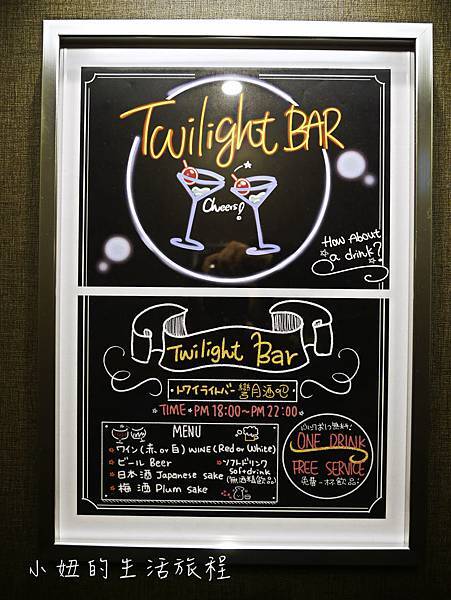 Twilight BAR
Cheers!
How About
a drink?
Twilight Bar
・トワイライトバー 彎月酒吧・
*TIME* PM 18:00~PM 22:00*
MENU
ワイン(赤、or 白) WINE (Red or White)
ビール Beer
ソフトドリンク
Soft drink
(無酒精飲品)
日本酒 Japanese sake
梅酒 Plum sake
ONE DRINK
FREE SERVICE
免費一杯飲品
小妞的生活旅程